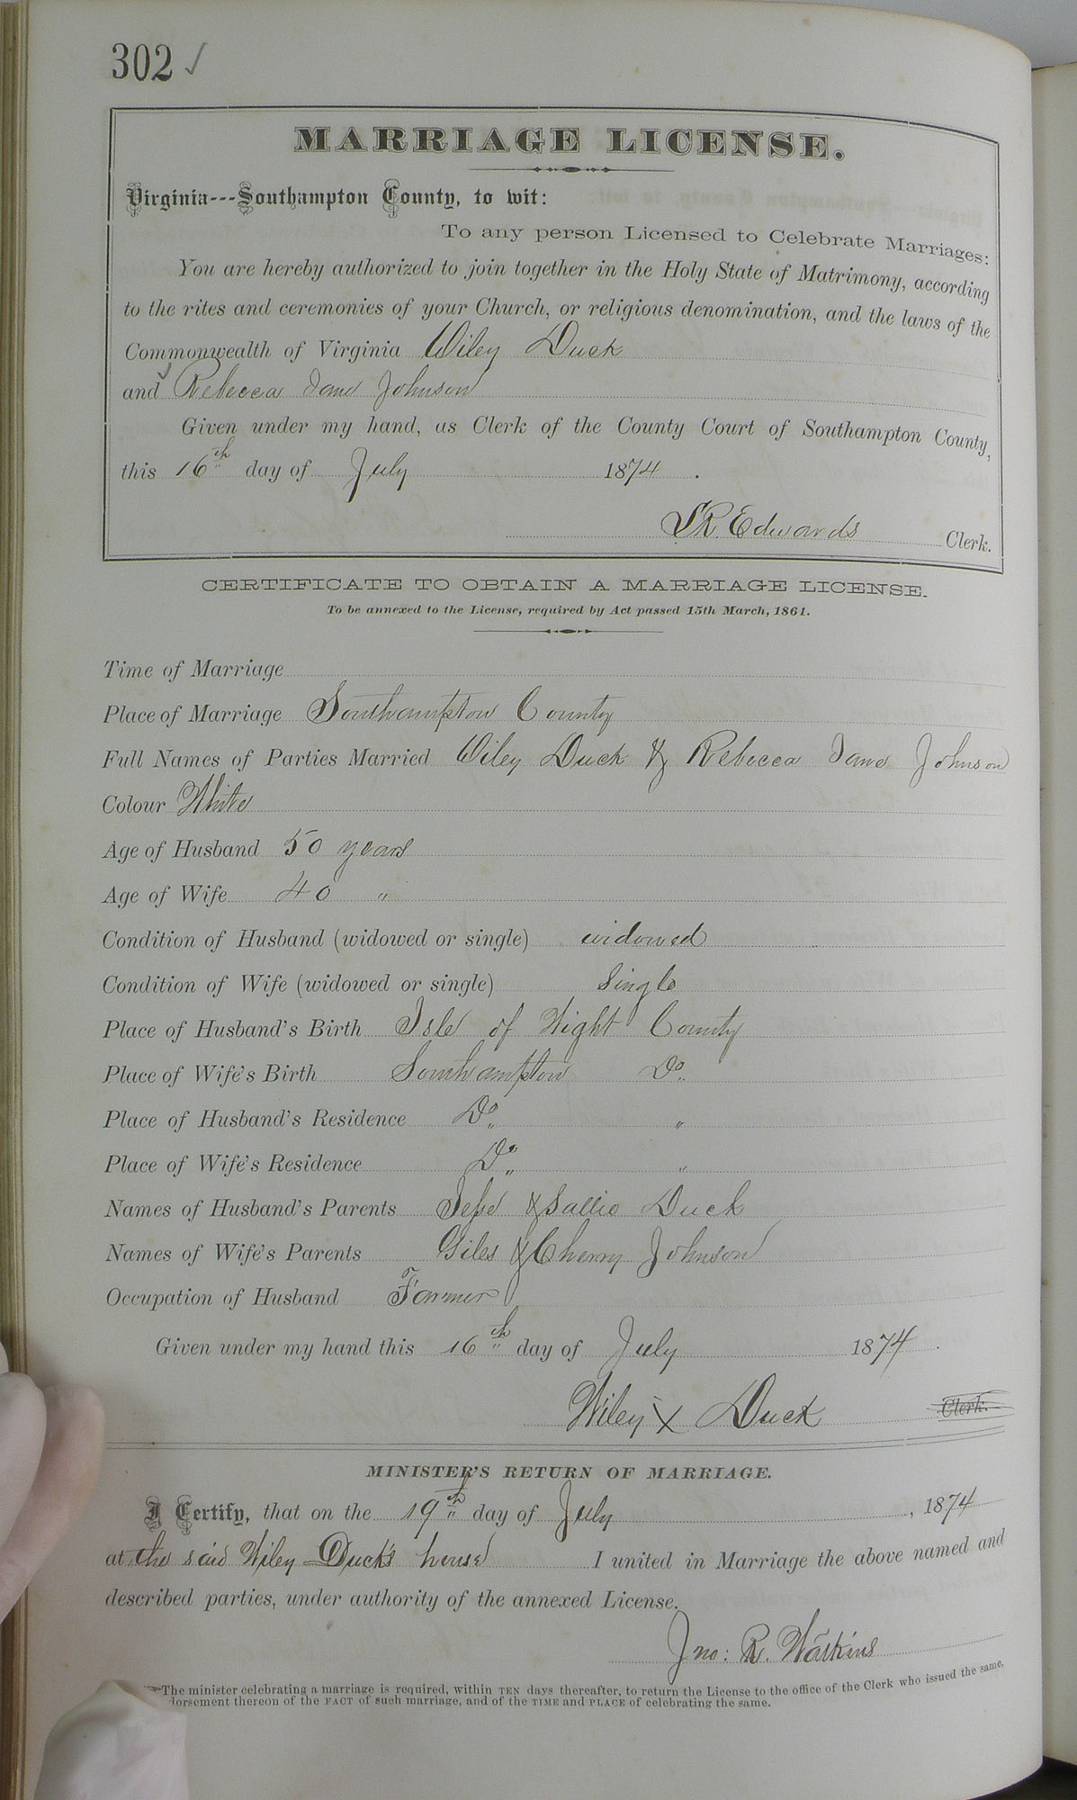 302 ✓
MARRIAGE LICENSE.
Virginia---Southampton County, to wit:
To any person Licensed to Celebrate Marriages:
You are hereby authorized to join together in the Holy State of Matrimony, according
to the rites and ceremonies of your Church, or religious denomination, and the laws of the
Commonwealth of Virginia Wiley Duck
and Rebecca Jane Johnson
Given under my hand, as Clerk of the County Court of Southampton County,
this 16th day of July 1874.
L.R. Edwards Clerk.
CERTIFICATE TO OBTAIN A MARRIAGE LICENSE.
To be annexed to the License, required by Act passed 15th March, 1861.
Time of Marriage
Place of Marriage Southampton County
Full Names of Parties Married Wiley Duck & Rebecca Jane Johnson
Colour White
Age of Husband 50 years
Age of Wife 40 "
Condition of Husband (widowed or single) widowed
Condition of Wife (widowed or single) Single
Place of Husband's Birth Isle of Wight County
Place of Wife's Birth Southampton Do
Place of Husband's Residence Do "
Place of Wife's Residence Do "
Names of Husband's Parents Jesse & Sallie Duck
Names of Wife's Parents Giles & Cherry Johnson
Occupation of Husband Farmer
Given under my hand this 16th day of July 1874.
Wiley X Duck Clerk.
MINISTER'S RETURN OF MARRIAGE.
I Certify, that on the 19th day of July, 1874
at the said Wiley Duck's house I united in Marriage the above named and
described parties, under authority of the annexed License.
Jno: R. Watkins
The minister celebrating a marriage is required, within TEN days thereafter, to return the License to the office of the Clerk who issued the same,
dorsement thereon of the FACT of such marriage, and of the TIME and PLACE of celebrating the same.